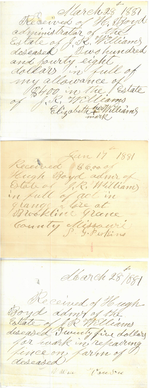 March 28th 1881
Received of H Boyd
administrator of the
Estate of J. R. Williams
deseased Two hundred
and forty eight
dollars in full of
my allowance of
$400 in the Estate
of J. R. Williams
Elizabeth Williams
mark
Jan 17th 1881
Received
Hugh Boyd admr of
Estate of J R Williams
in full of act in
Brookline Greene
County Missouri
March 28th 1881
Received of Hugh
Boyd admr of the
Estate of J R Williams
deseased Twenty five dollars
for work in repairing
fence on farm of
deseased